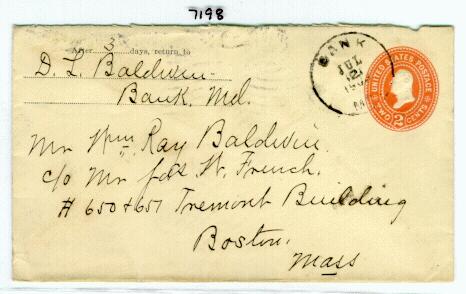 7198
After 3 days, return to
D. L. Baldwin
Bank, Md.
BANK
JUL
12
UNITED STATES POSTAGE
TWO 2 CENTS
Mr Wm Ray Baldwin.
c/o Mr Jas W. French.
# 650 & 651 Tremont Building
Boston.
Mass